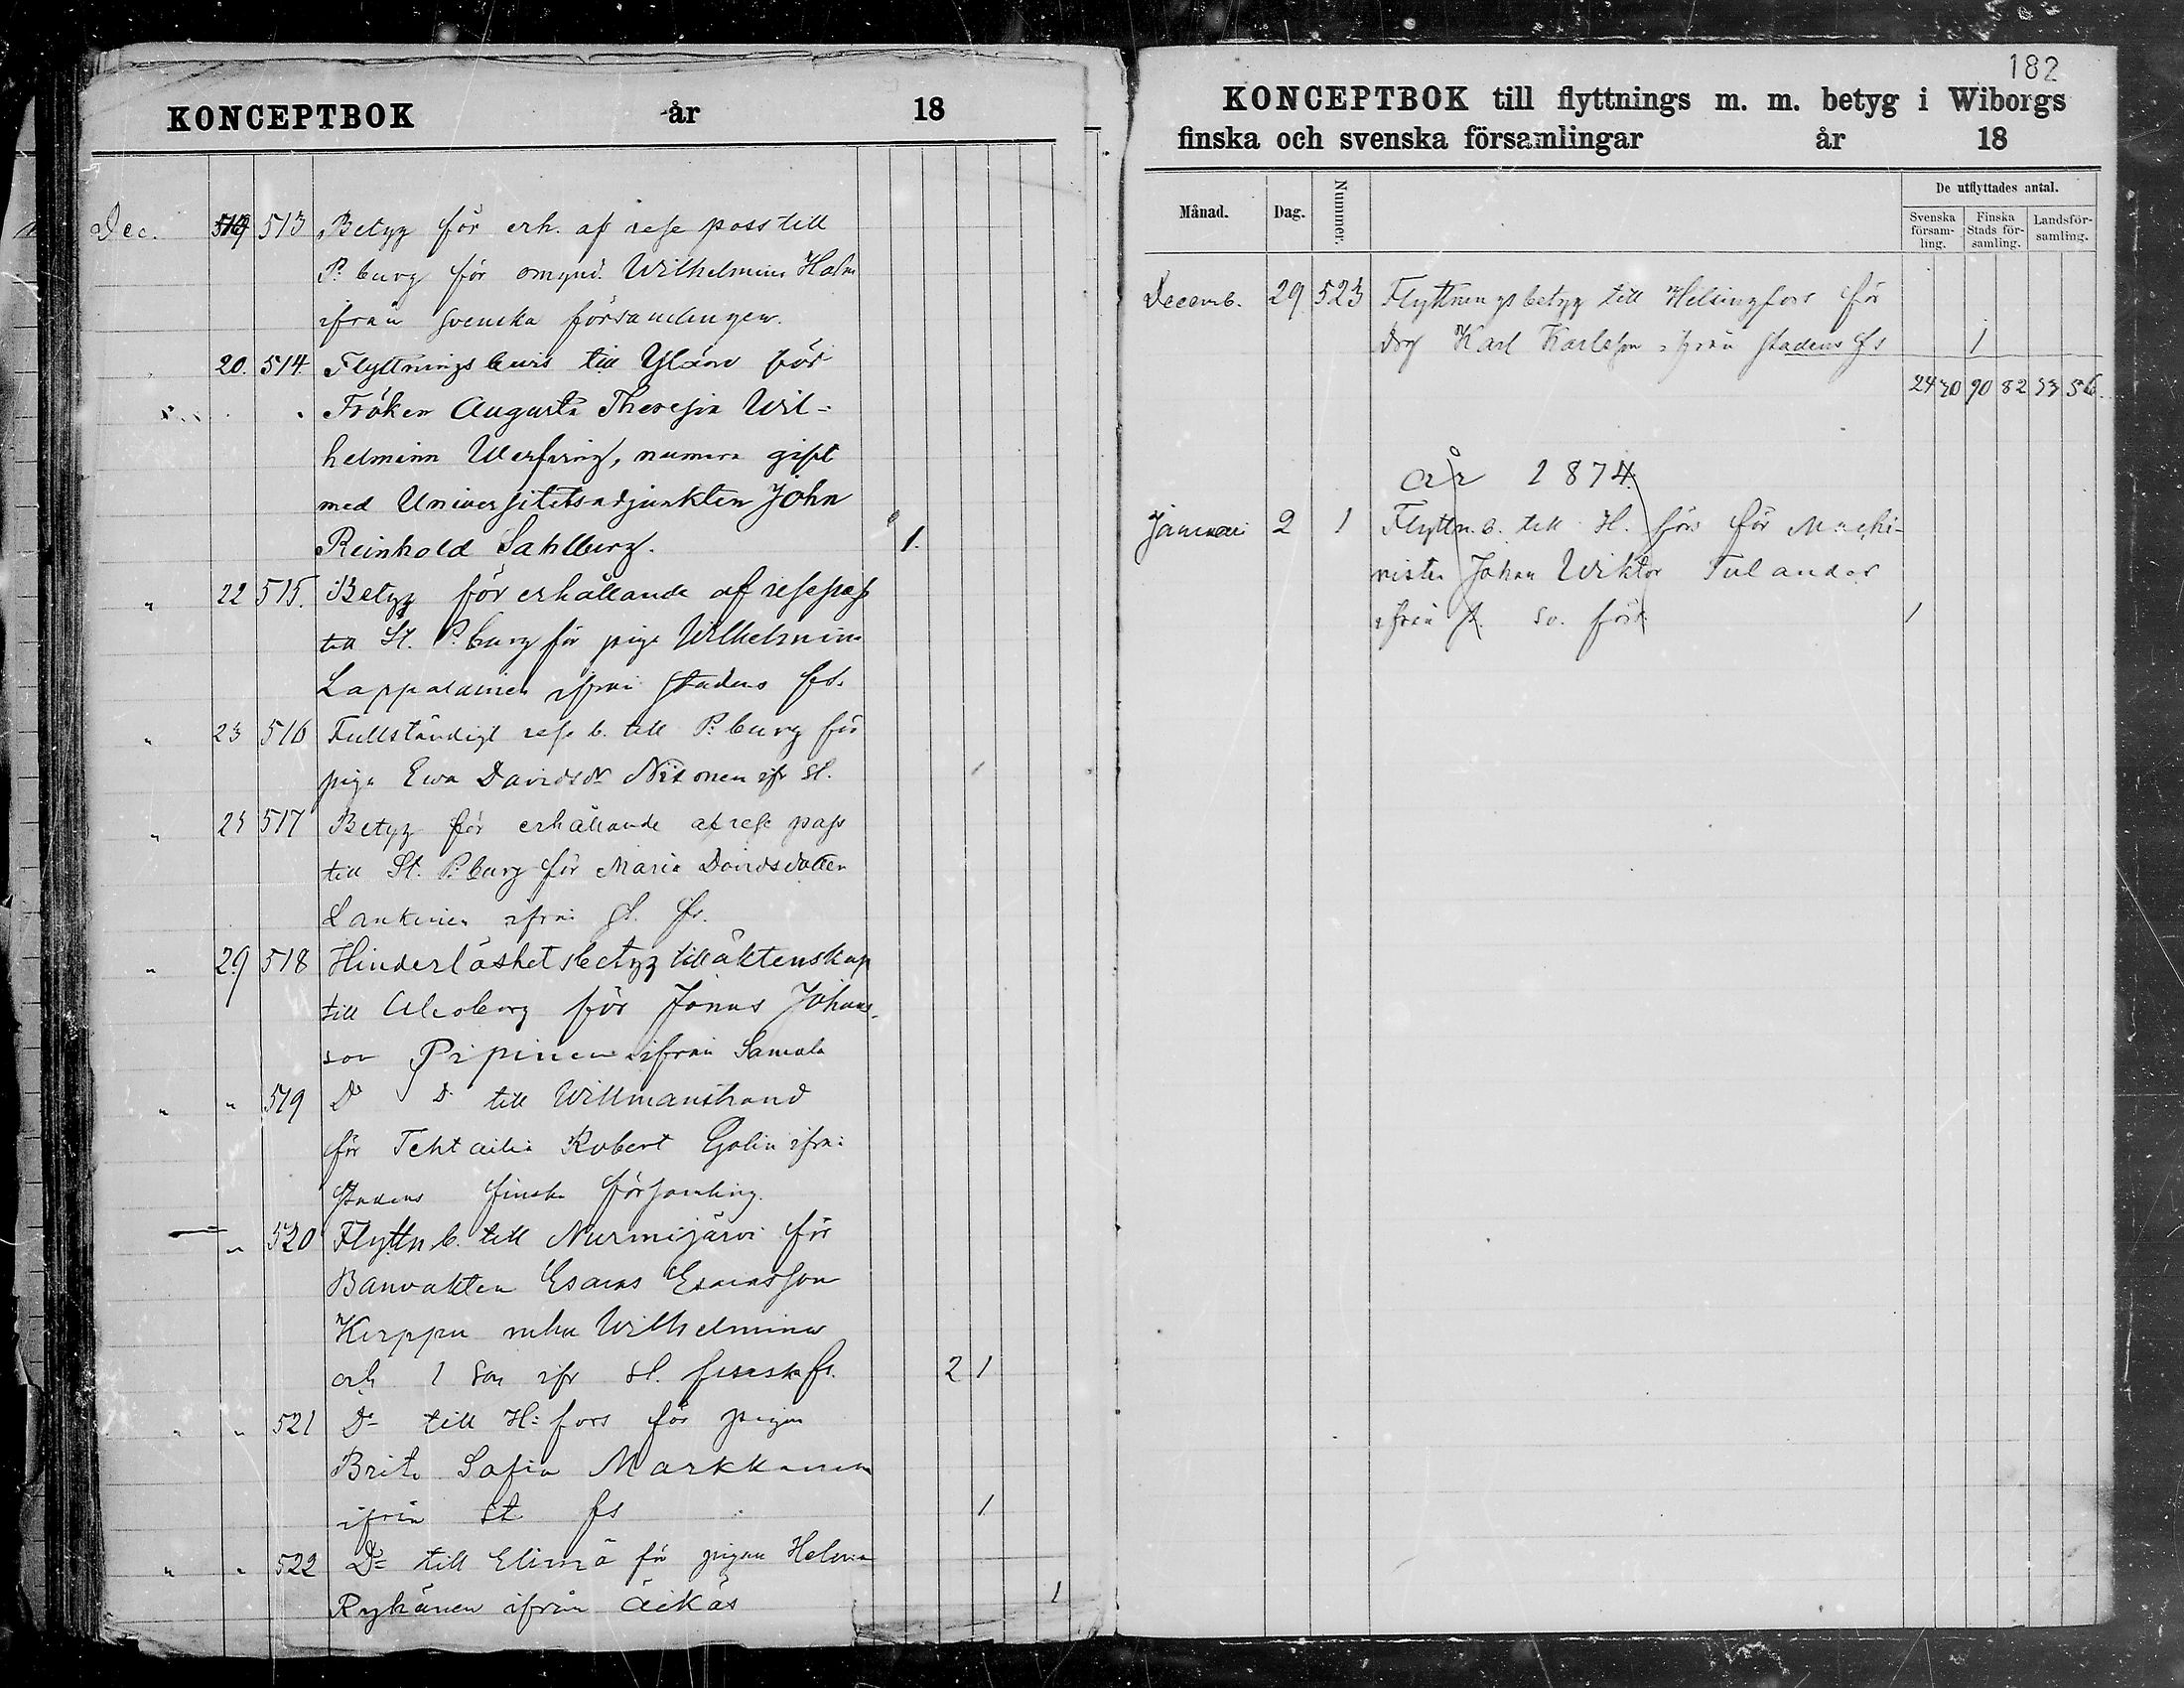 KONCEPTBOK år 18
Dec. 19 513 Betyg för erh. af rese pass till
P:burg för omynd. Wilhelmina Holm
ifrån svenska församlingen.
20. 514. Flyttningsbevis till Yläne för
Fröken Augusta Theresia Wil-
helmina Werfving, numera gift
med Universitetsadjunkten John
Reinhold Sahlberg. 1.
" 22 515. Betyg för erhållande af resepass
till St. P:burg för piga Wilhelmina
Lappalainen ifrån stadens fs.
" 23 516 Fullständigt rese b. till P:burg för
piga Ewa Davidsdr Nisonen ifr st. 1
" 23 517 Betyg för erhållande af rese pass
till St. P:burg för Maria Davidsdotter
Lankinen ifrån st. fs.
" 29 518 Hinderlöshetsbetyg till äktenskap
till Uleåborg för Jonas Johans-
son Pipinen ifrån Samola
" " 519 Do Do till Willmanstrand
för Robert Golin ifrån
stadens finska församling.
" 520 Flyttn b. till Nurmijärvi för
Banvakten Esaias Esaiasson
Kirppu mhu Wilhelmina
och 1 son ifr st. finska fs. 2 1
" " 521 Do till H:fors för pigan
Brita Sofia Markkanen
ifrån st fs 1
" " 522 Do till Elimä för pigan Helena
Ryhänen ifrån Äikäs 1
182
KONCEPTBOK till flyttnings m. m. betyg i Wiborgs
finska och svenska församlingar år 18
Månad. Dag. Nummer. De utflyttades antal.
Svenska församling. Finska Stads församling. Landsförsamling.
Decemb. 29 523 Flyttningsbetyg till Helsingfors för
drg Karl Karlsson ifrån stadens fs 1
24 20 90 82 53 56.
år 1874.
Januari 2 1 Flyttn. b. till H.fors för Machi-
nisten Johan Wiktor Tulander
ifrån st. sv. förs. 1